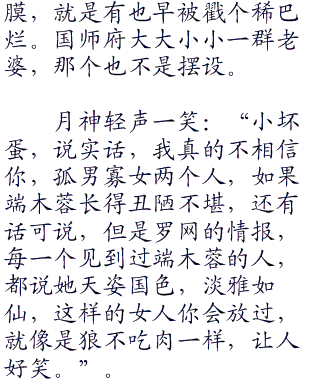 膜，就是有也早被戳个稀巴
烂。国师府大大小小一群老
婆，那个也不是摆设。
月神轻声一笑：“小坏
蛋，说实话，我真的不相信
你，孤男寡女两个人，如果
端木蓉长得丑陋不堪，还有
话可说，但是罗网的情报，
每一个见到过端木蓉的人，
都说她天姿国色，淡雅如
仙，这样的女人你会放过，
就像是狼不吃肉一样，让人
好笑。”。